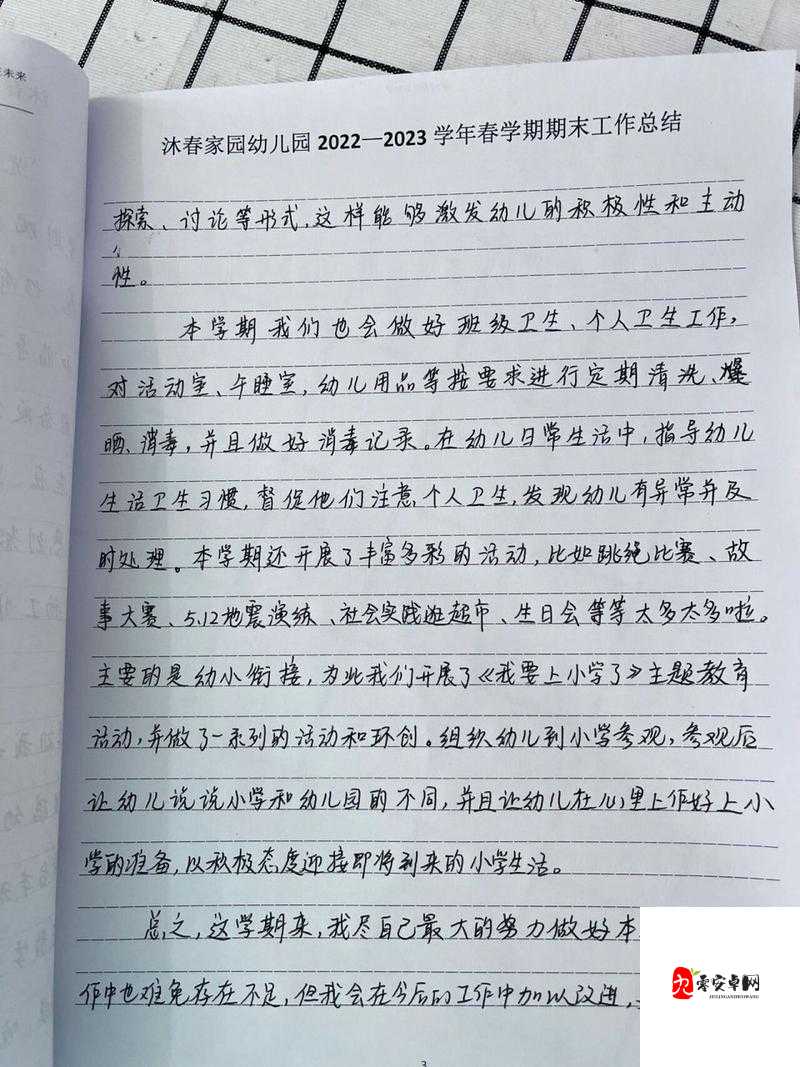 未来
沐春家园幼儿园 2022—2023 学年春学期期末工作总结
探索、讨论等形式,这样能够激发幼儿的积极性和主动
性。
本学期我们也会做好班级卫生、个人卫生工作,
对活动室、午睡室,幼儿用品等按要求进行定期清洗、爆
晒、消毒,并且做好消毒记录。在幼儿日常生活中,指导幼儿
生活卫生习惯,督促他们注意个人卫生,发现幼儿有异常并及
时处理。本学期还开展了丰富多彩的活动,比如跳绳比赛、故
事大赛、5.12地震演练、社会实践逛超市、生日会等等太多太多啦。
主要的是幼小衔接,为此我们开展了《我要上小学了》主题教育
活动,并做了一系列的活动和环创。组织幼儿到小学参观,参观后
让幼儿说说小学和幼儿园的不同,并且让幼儿在心里上作好上小
学的准备,以积极态度迎接即将到来的小学生活。
总之,这学期来,我尽自己最大的努力做好本
作中也难免存在不足,但我会在今后的工作中加以改进,
3
零安卓网
JIULINGANDROIDWANG